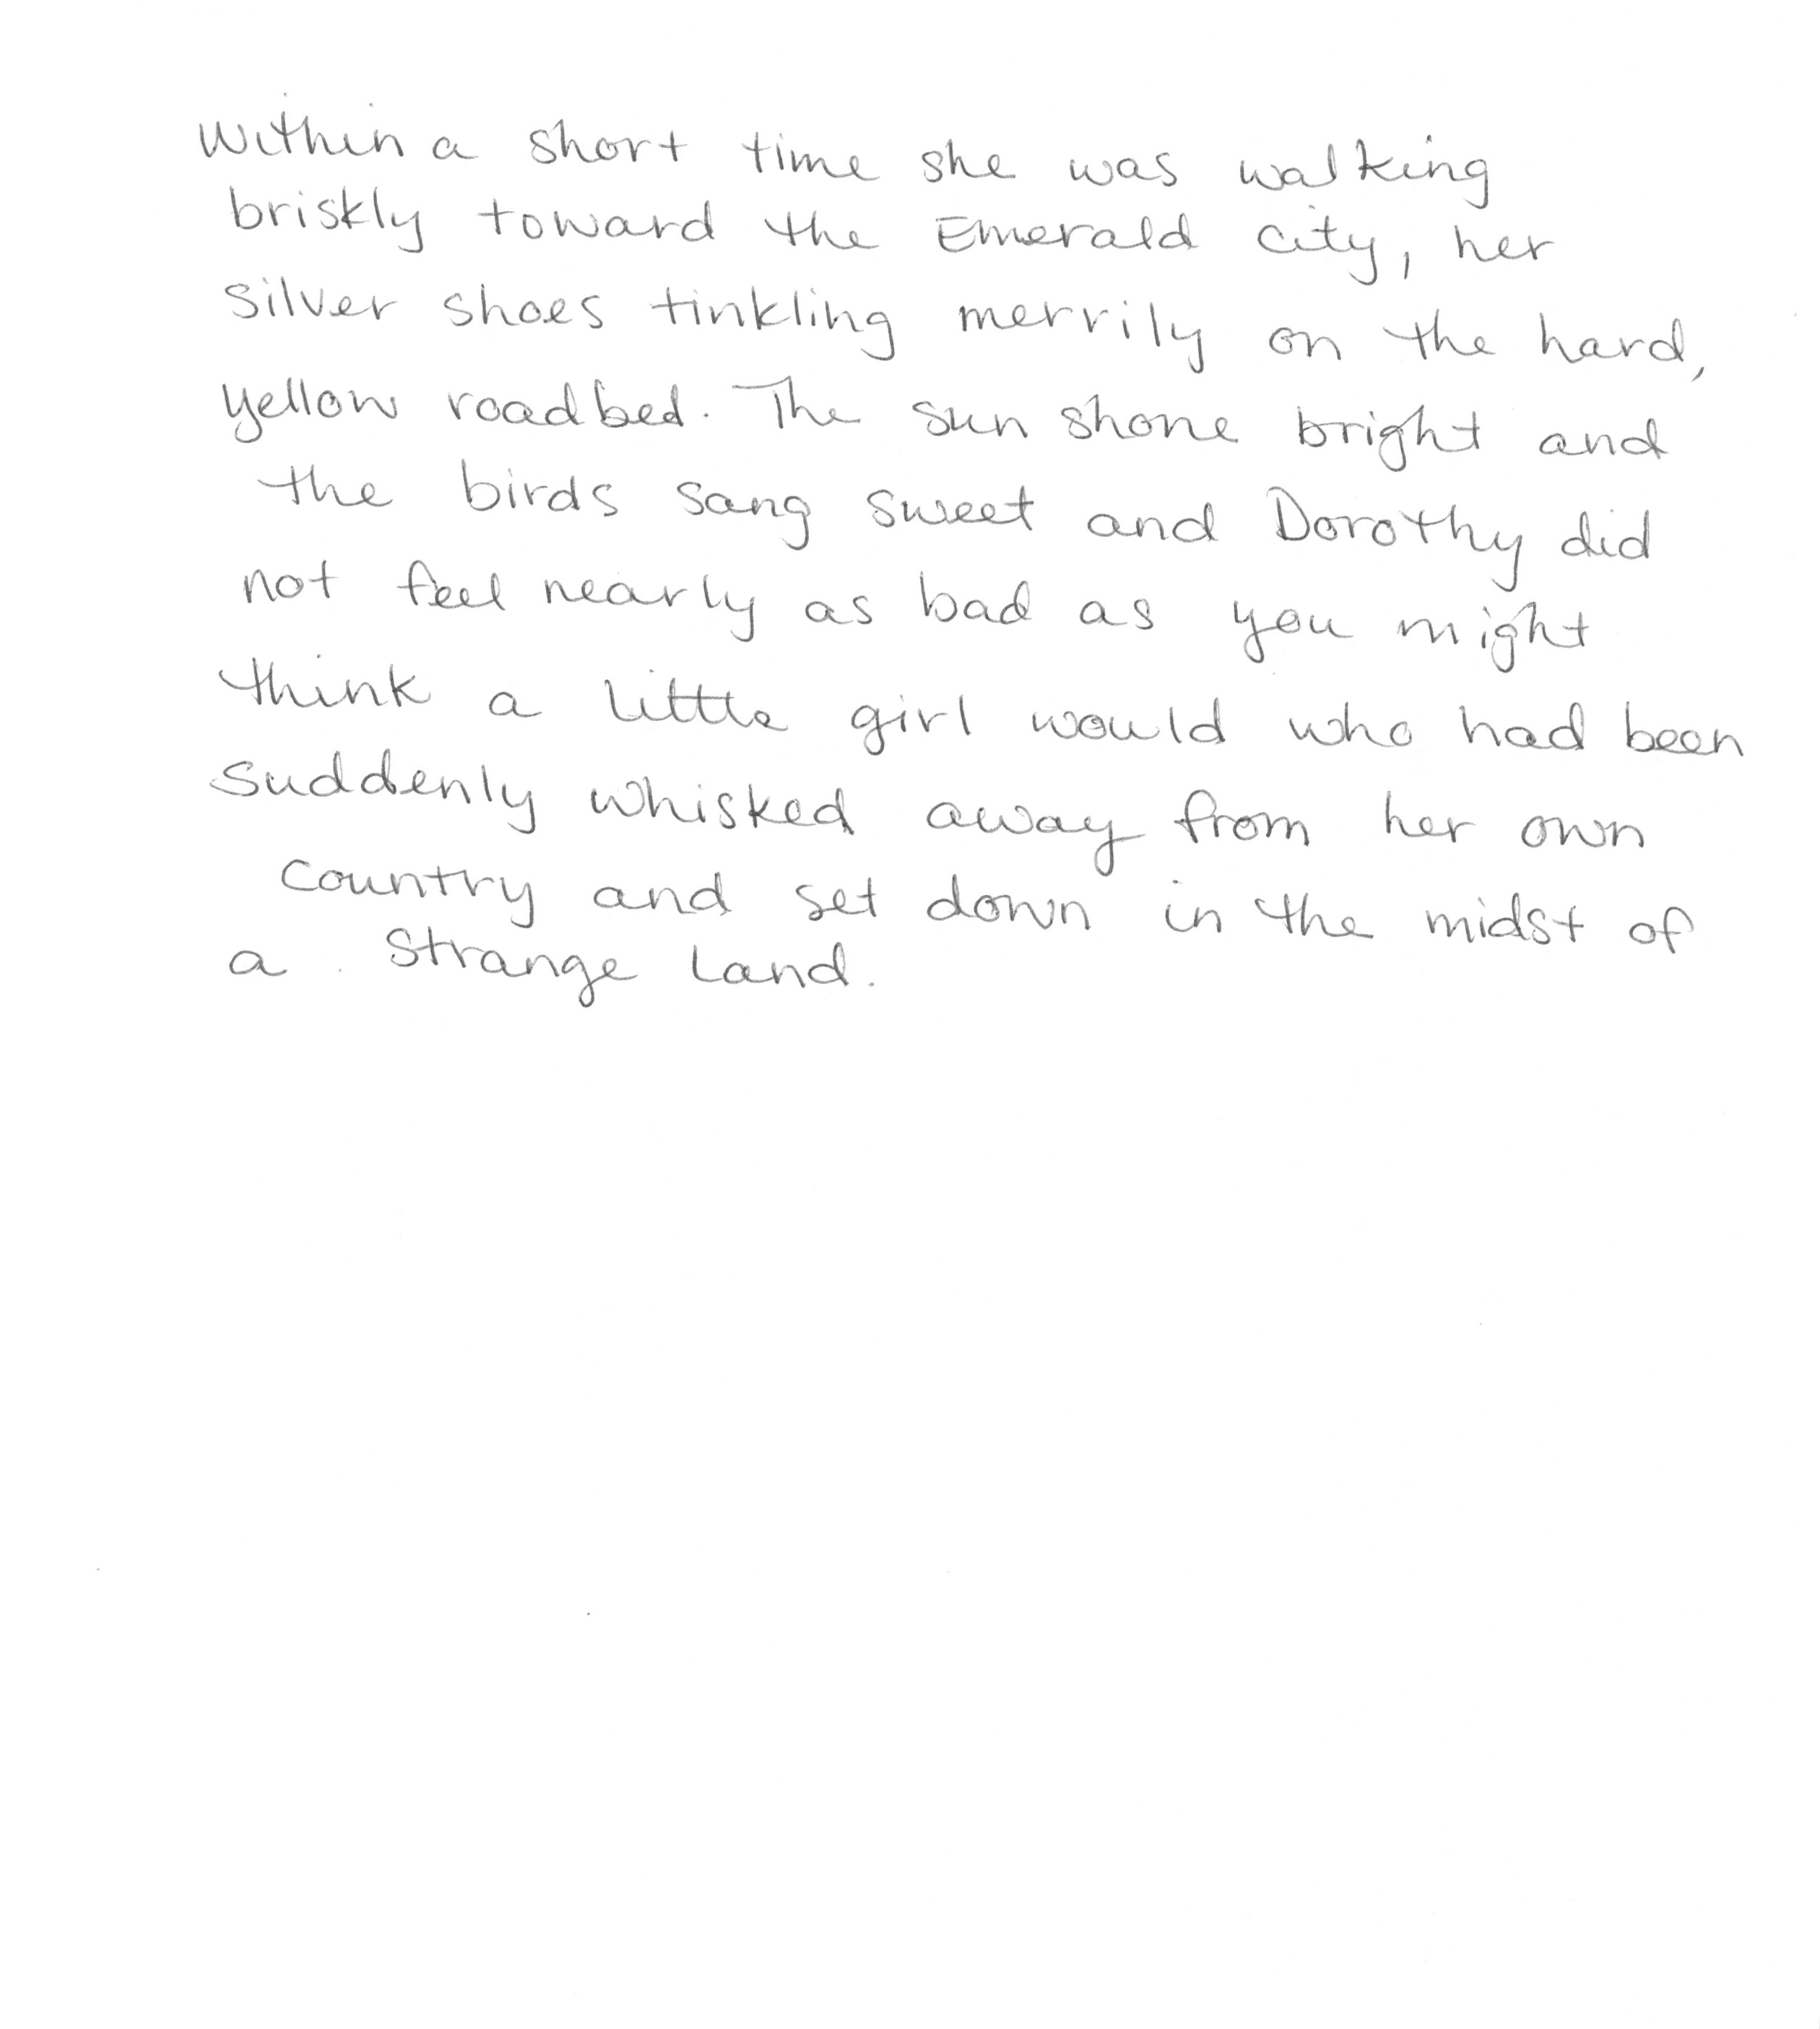 Within a short time she was walking
briskly toward the Emerald city, her
silver shoes tinkling merrily on the hard,
yellow roadbed. The sun shone bright and
the birds sang sweet and Dorothy did
not feel nearly as bad as you might
think a little girl would who had been
suddenly whisked away from her own
country and set down in the midst of
a strange land.